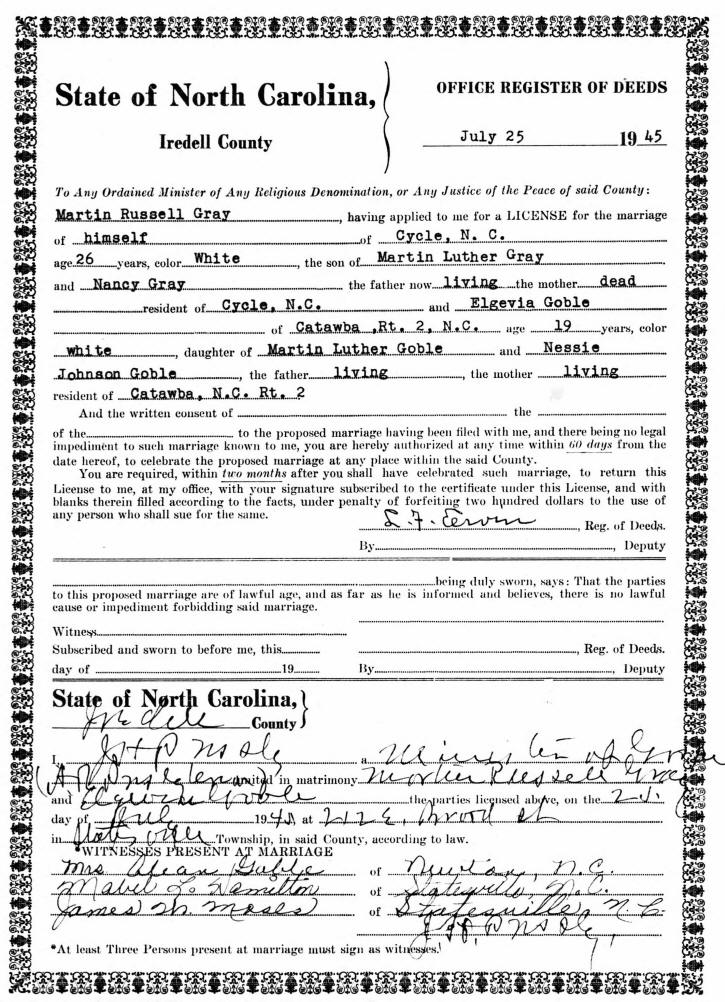 State of North Carolina,
Iredell County
OFFICE REGISTER OF DEEDS
July 25 1945
To Any Ordained Minister of Any Religious Denomination, or Any Justice of the Peace of said County:
Martin Russell Gray, having applied to me for a LICENSE for the marriage
of himself of Cycle, N. C.
age 26 years, color White, the son of Martin Luther Gray
and Nancy Gray the father now living the mother dead
resident of Cycle, N.C. and Elgevia Goble
of Catawba ,Rt. 2, N.C. age 19 years, color
white, daughter of Martin Luther Goble and Nessie
Johnson Goble, the father living, the mother living
resident of Catawba, N.C. Rt. 2
And the written consent of the
of the to the proposed marriage having been filed with me, and there being no legal
impediment to such marriage known to me, you are hereby authorized at any time within 60 days from the
date hereof, to celebrate the proposed marriage at any place within the said County.
You are required, within two months after you shall have celebrated such marriage, to return this
License to me, at my office, with your signature subscribed to the certificate under this License, and with
blanks therein filled according to the facts, under penalty of forfeiting two hundred dollars to the use of
any person who shall sue for the same.
, Reg. of Deeds.
By , Deputy
being duly sworn, says: That the parties
to this proposed marriage are of lawful age, and as far as he is informed and believes, there is no lawful
cause or impediment forbidding said marriage.
Witness
Subscribed and sworn to before me, this , Reg. of Deeds.
day of 19 By , Deputy
State of North Carolina,
Iredell County
I, a Minister of
united in matrimony Martin Russell Gray
and Goble the parties licensed above, on the
day of 1945 at 212 E. Broad St
in Statesville Township, in said County, according to law.
*WITNESSES PRESENT AT MARRIAGE
Mrs. Goble of Newton, N.C.
Mabel L. Hamilton of Statesville, N.C.
James M. Moses of Statesville, N.C.
*At least Three Persons present at marriage must sign as witnesses.